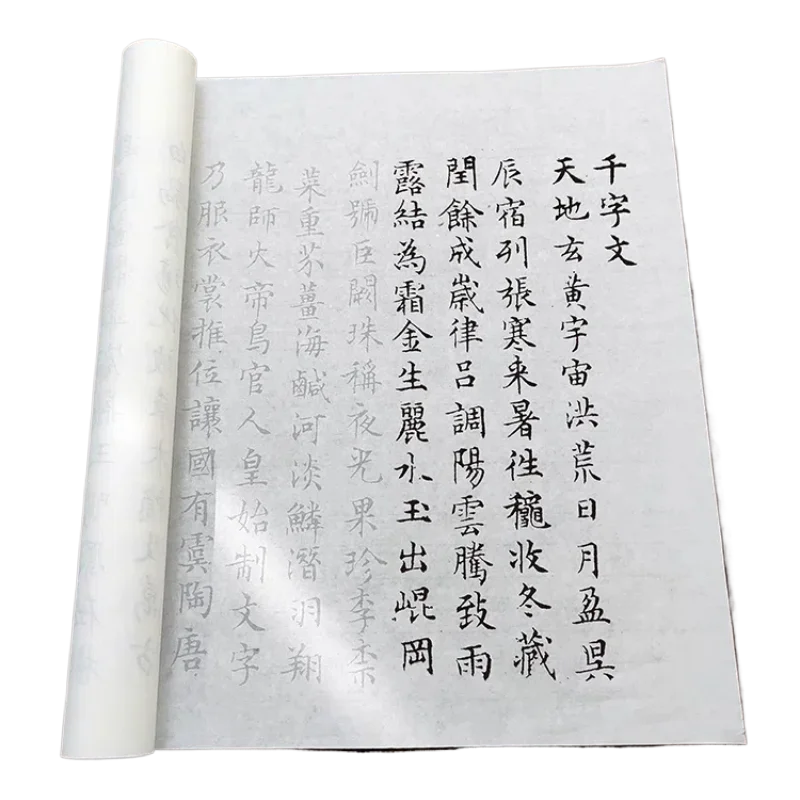 千字文
天地玄黃宇宙洪荒日月盈昃
辰宿列張寒来暑往穐收冬藏
閏餘成嵗律呂調陽雲騰致雨
露結為霜金生麗水玉出崐岡
劍號巨闕珠稱夜光果珍李柰
菜重芥薑海鹹河淡鱗潛羽翔
龍師火帝鳥官人皇始制文字
乃服衣裳推位讓國有虞陶唐